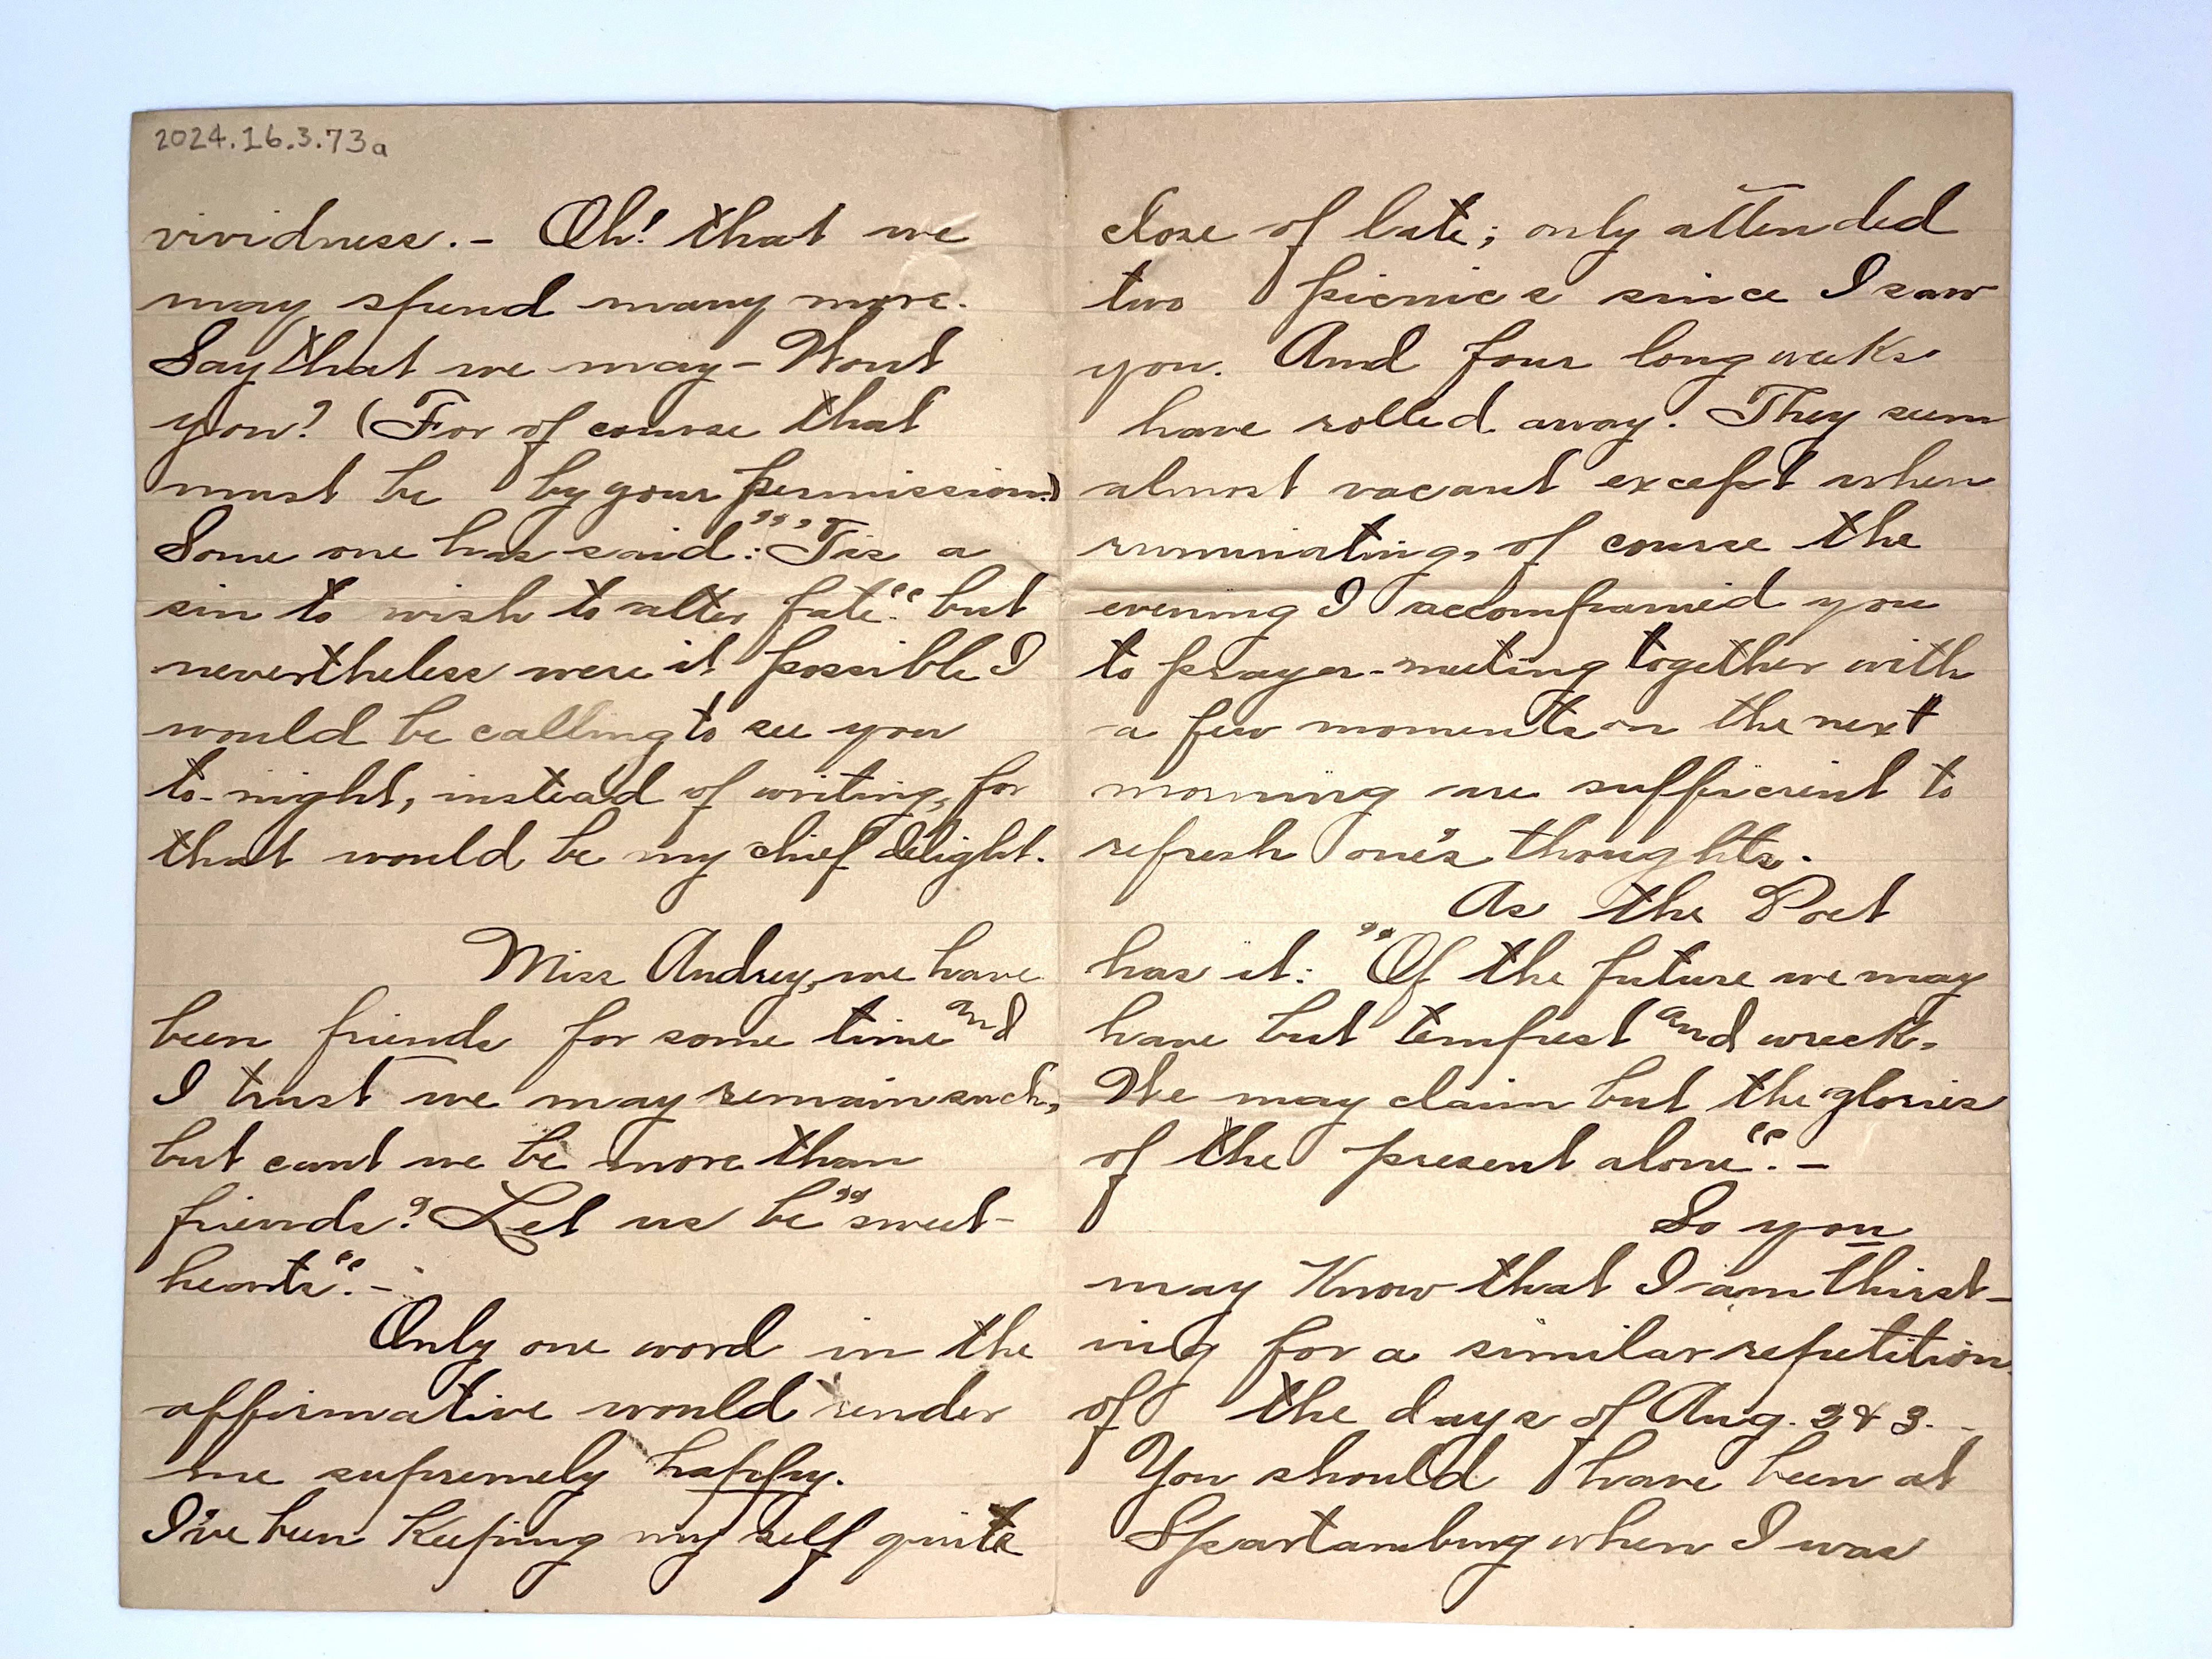 2024.16.3.73a
vividness.- Oh! that we
may spend many more.
Say that we may - Wont
you? (For of course that
must be by your permission.)
Some one has said: "'Tis a
sin to wish to alter fate." but
nevertheless were it possible I
would be calling to see you
to-night, instead of writing, for
that would be my chief delight.
Miss Audrey, we have
been friends for some time and
I trust we may remain such,
but cant we be more than
friends? Let us be "sweet-
hearts". -
Only one word in the
affirmative would render
me supremely happy.
I've been keeping my self quite
close of late; only attended
two picnics since I saw
you. And four long weeks
have rolled away. They seem
almost vacant except when
ruminating, of course the
evening I accompanied you
to prayer-meeting together with
a few moments on the next
morning are sufficient to
refresh one's thoughts.
As the Poet
has it: "Of the future we may
have but tempest and wreck,
We may claim but the glories
of the present alone". -
So you
may know that I am thirst-
ing for a similar repetition
of the days of Aug. 2 & 3. -
You should have been at
Spartanburg when I was